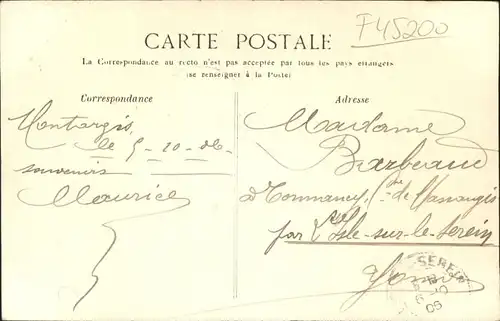 F45200
CARTE POSTALE
La Correspondance au recto n'est pas acceptée par tous les pays étrangers
(se renseigner à la Poste)
Correspondance
Adresse
Montargis
le 5-10-06
souvenirs
Maurice
Madame
Barbeaud
à Tormancy, Cne de Massangis
par l'Isle-sur-le-Serein
Yonne
SEREIN